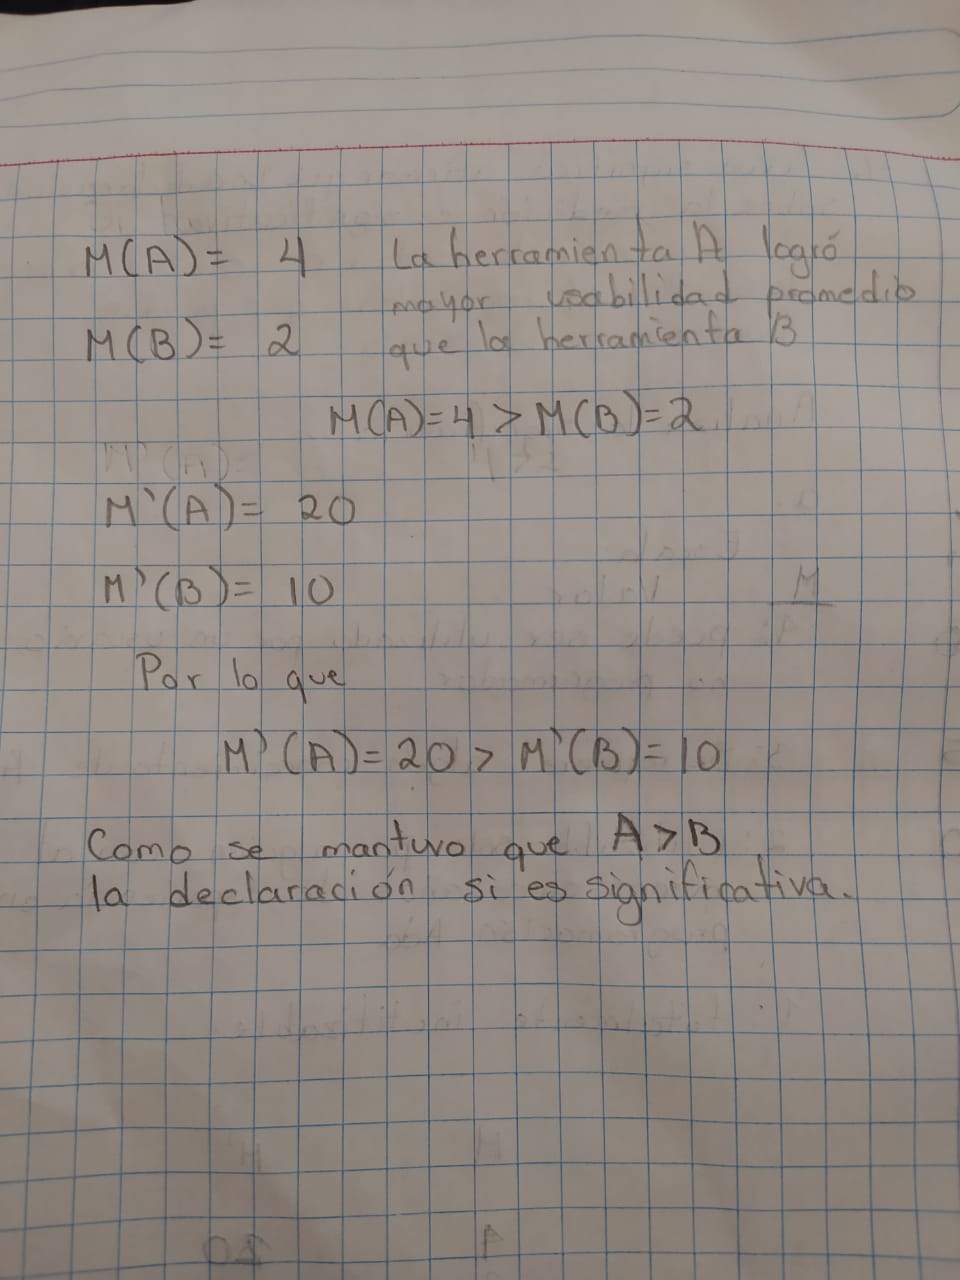 M(A)= 4 La herramienta A logró
mayor usabilidad promedio
M(B)= 2 que la herramienta B
M(A)=4 > M(B)=2
M'(A)=
M'(A)= 20
M'(B)= 10
Por lo que
M'(A)=20 > M'(B)=10
Como se mantuvo que A>B
la declaración si es significativa.